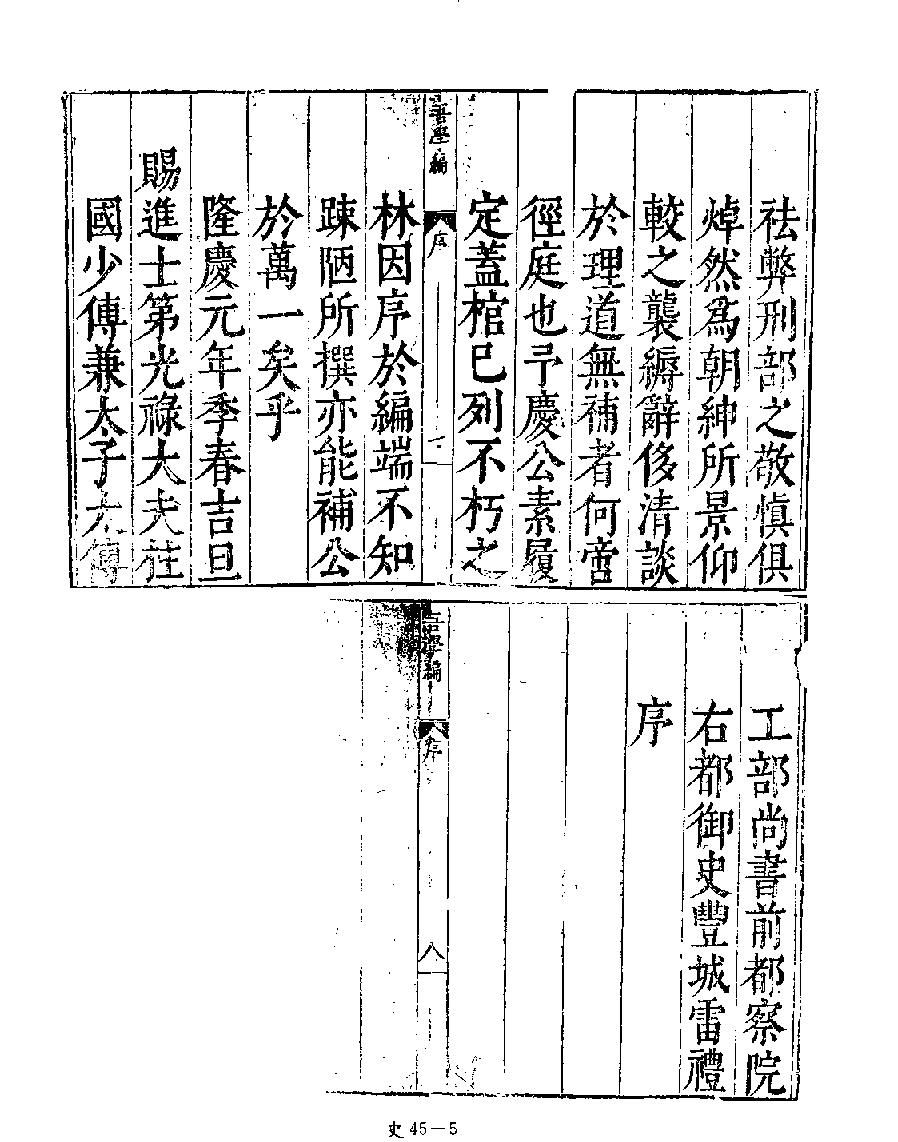 祛弊刑部之敬慎俱
焯然爲朝紳所景仰
較之襲縟辭侈清談
於理道無補者何啻
徑庭也予慶公素履
定蓋棺已列不朽之
吾學編
序
七
林因序於編端不知
踈陋所撰亦能補公
於萬一矣乎
隆慶元年季春吉旦
賜進士第光祿大夫柱
國少傅兼太子太傅
工部尚書前都察院
右都御史豐城雷禮
序
吾學編
序
八
史 45－5